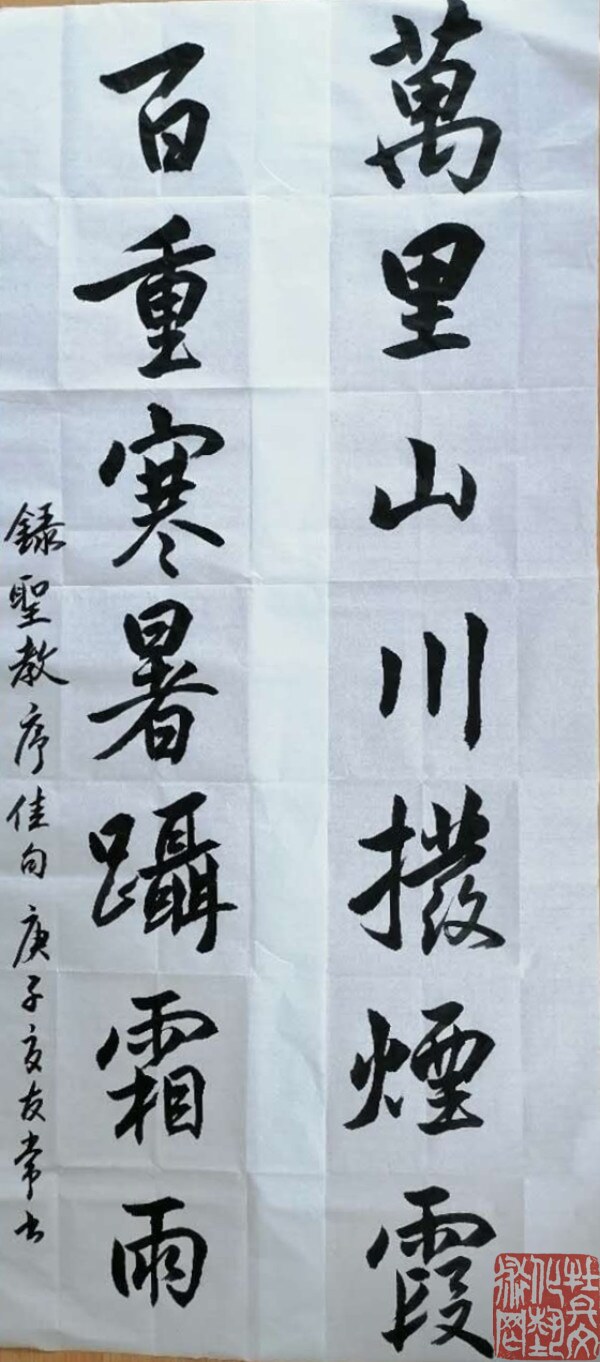 萬里山川撥煙霞
百重寒暑躡霜雨
録聖教序佳句 庚子夏友常书